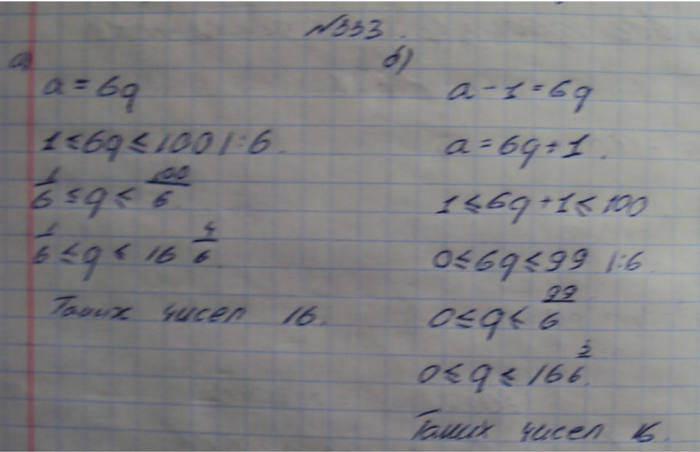 №333.
а)
a = 6q
1 ≤ 6q ≤ 100 |:6.
1/6 ≤ q ≤ 100/6
1/6 ≤ q ≤ 16 4/6
Таких чисел 16.
б)
a - 1 = 6q
a = 6q + 1.
1 ≤ 6q + 1 ≤ 100
0 ≤ 6q ≤ 99 |:6
0 ≤ q ≤ 99/6
0 ≤ q ≤ 16 3/6.
Таких чисел 16.